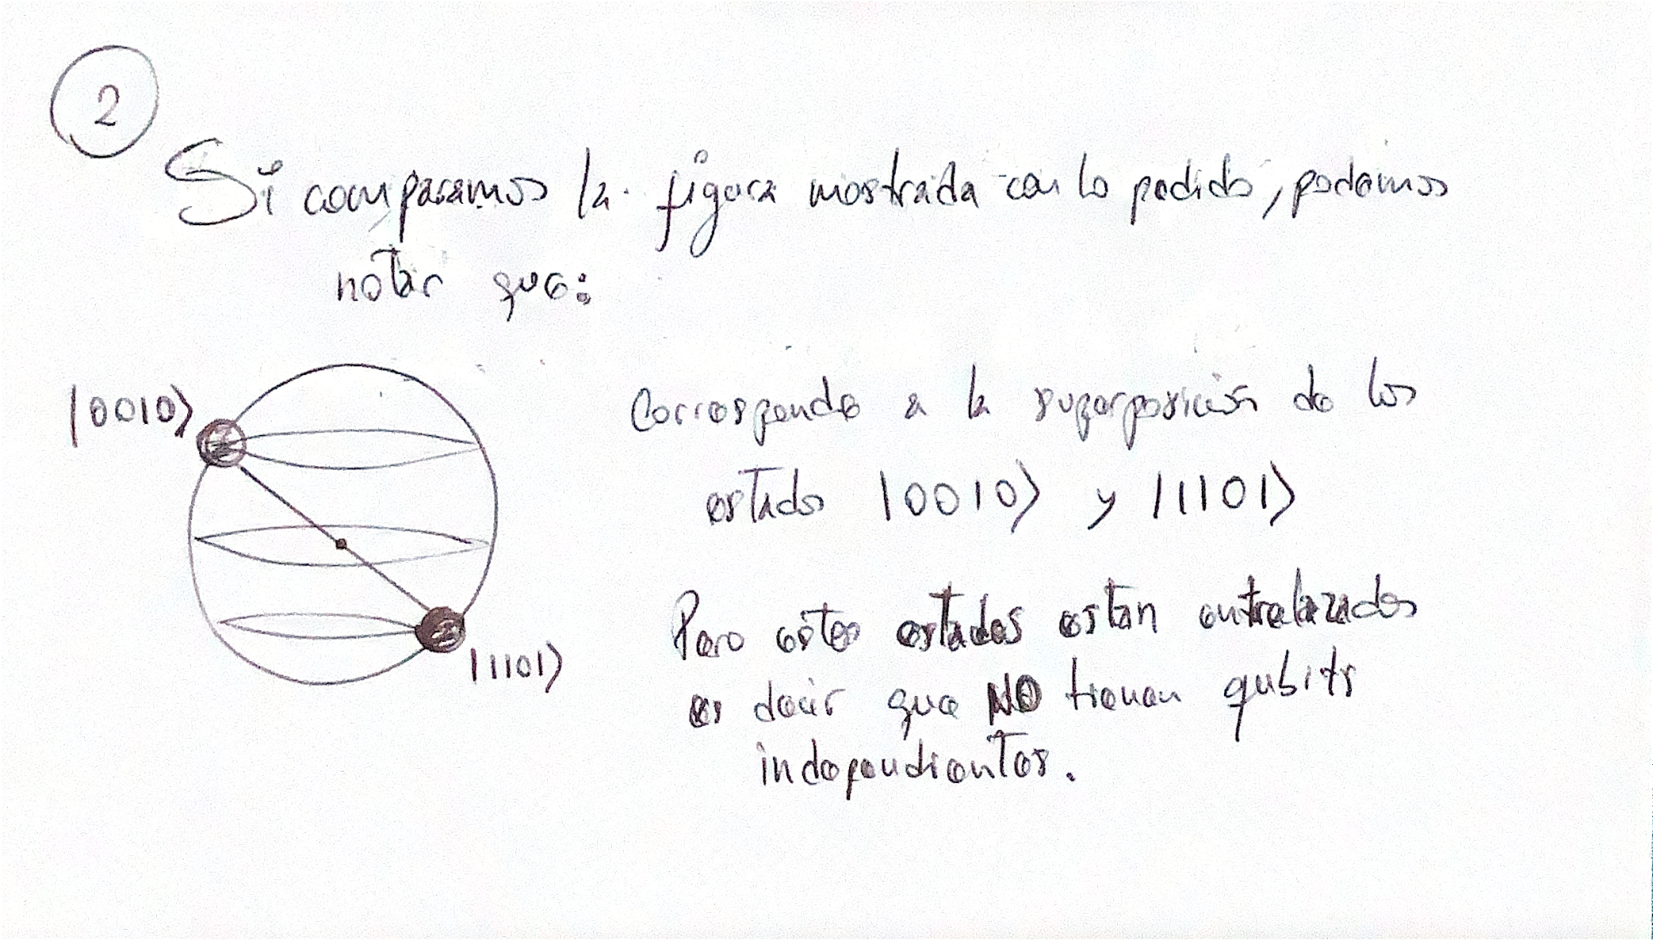 2
Si comparamos la figura mostrada con lo pedido, podemos
notar que:
|0010⟩
Corresponde a la superposición de los
estados |0010⟩ y |1101⟩
Pero estos estados están entrelazados
es decir que NO tienen qubits
|1101⟩
independientes.